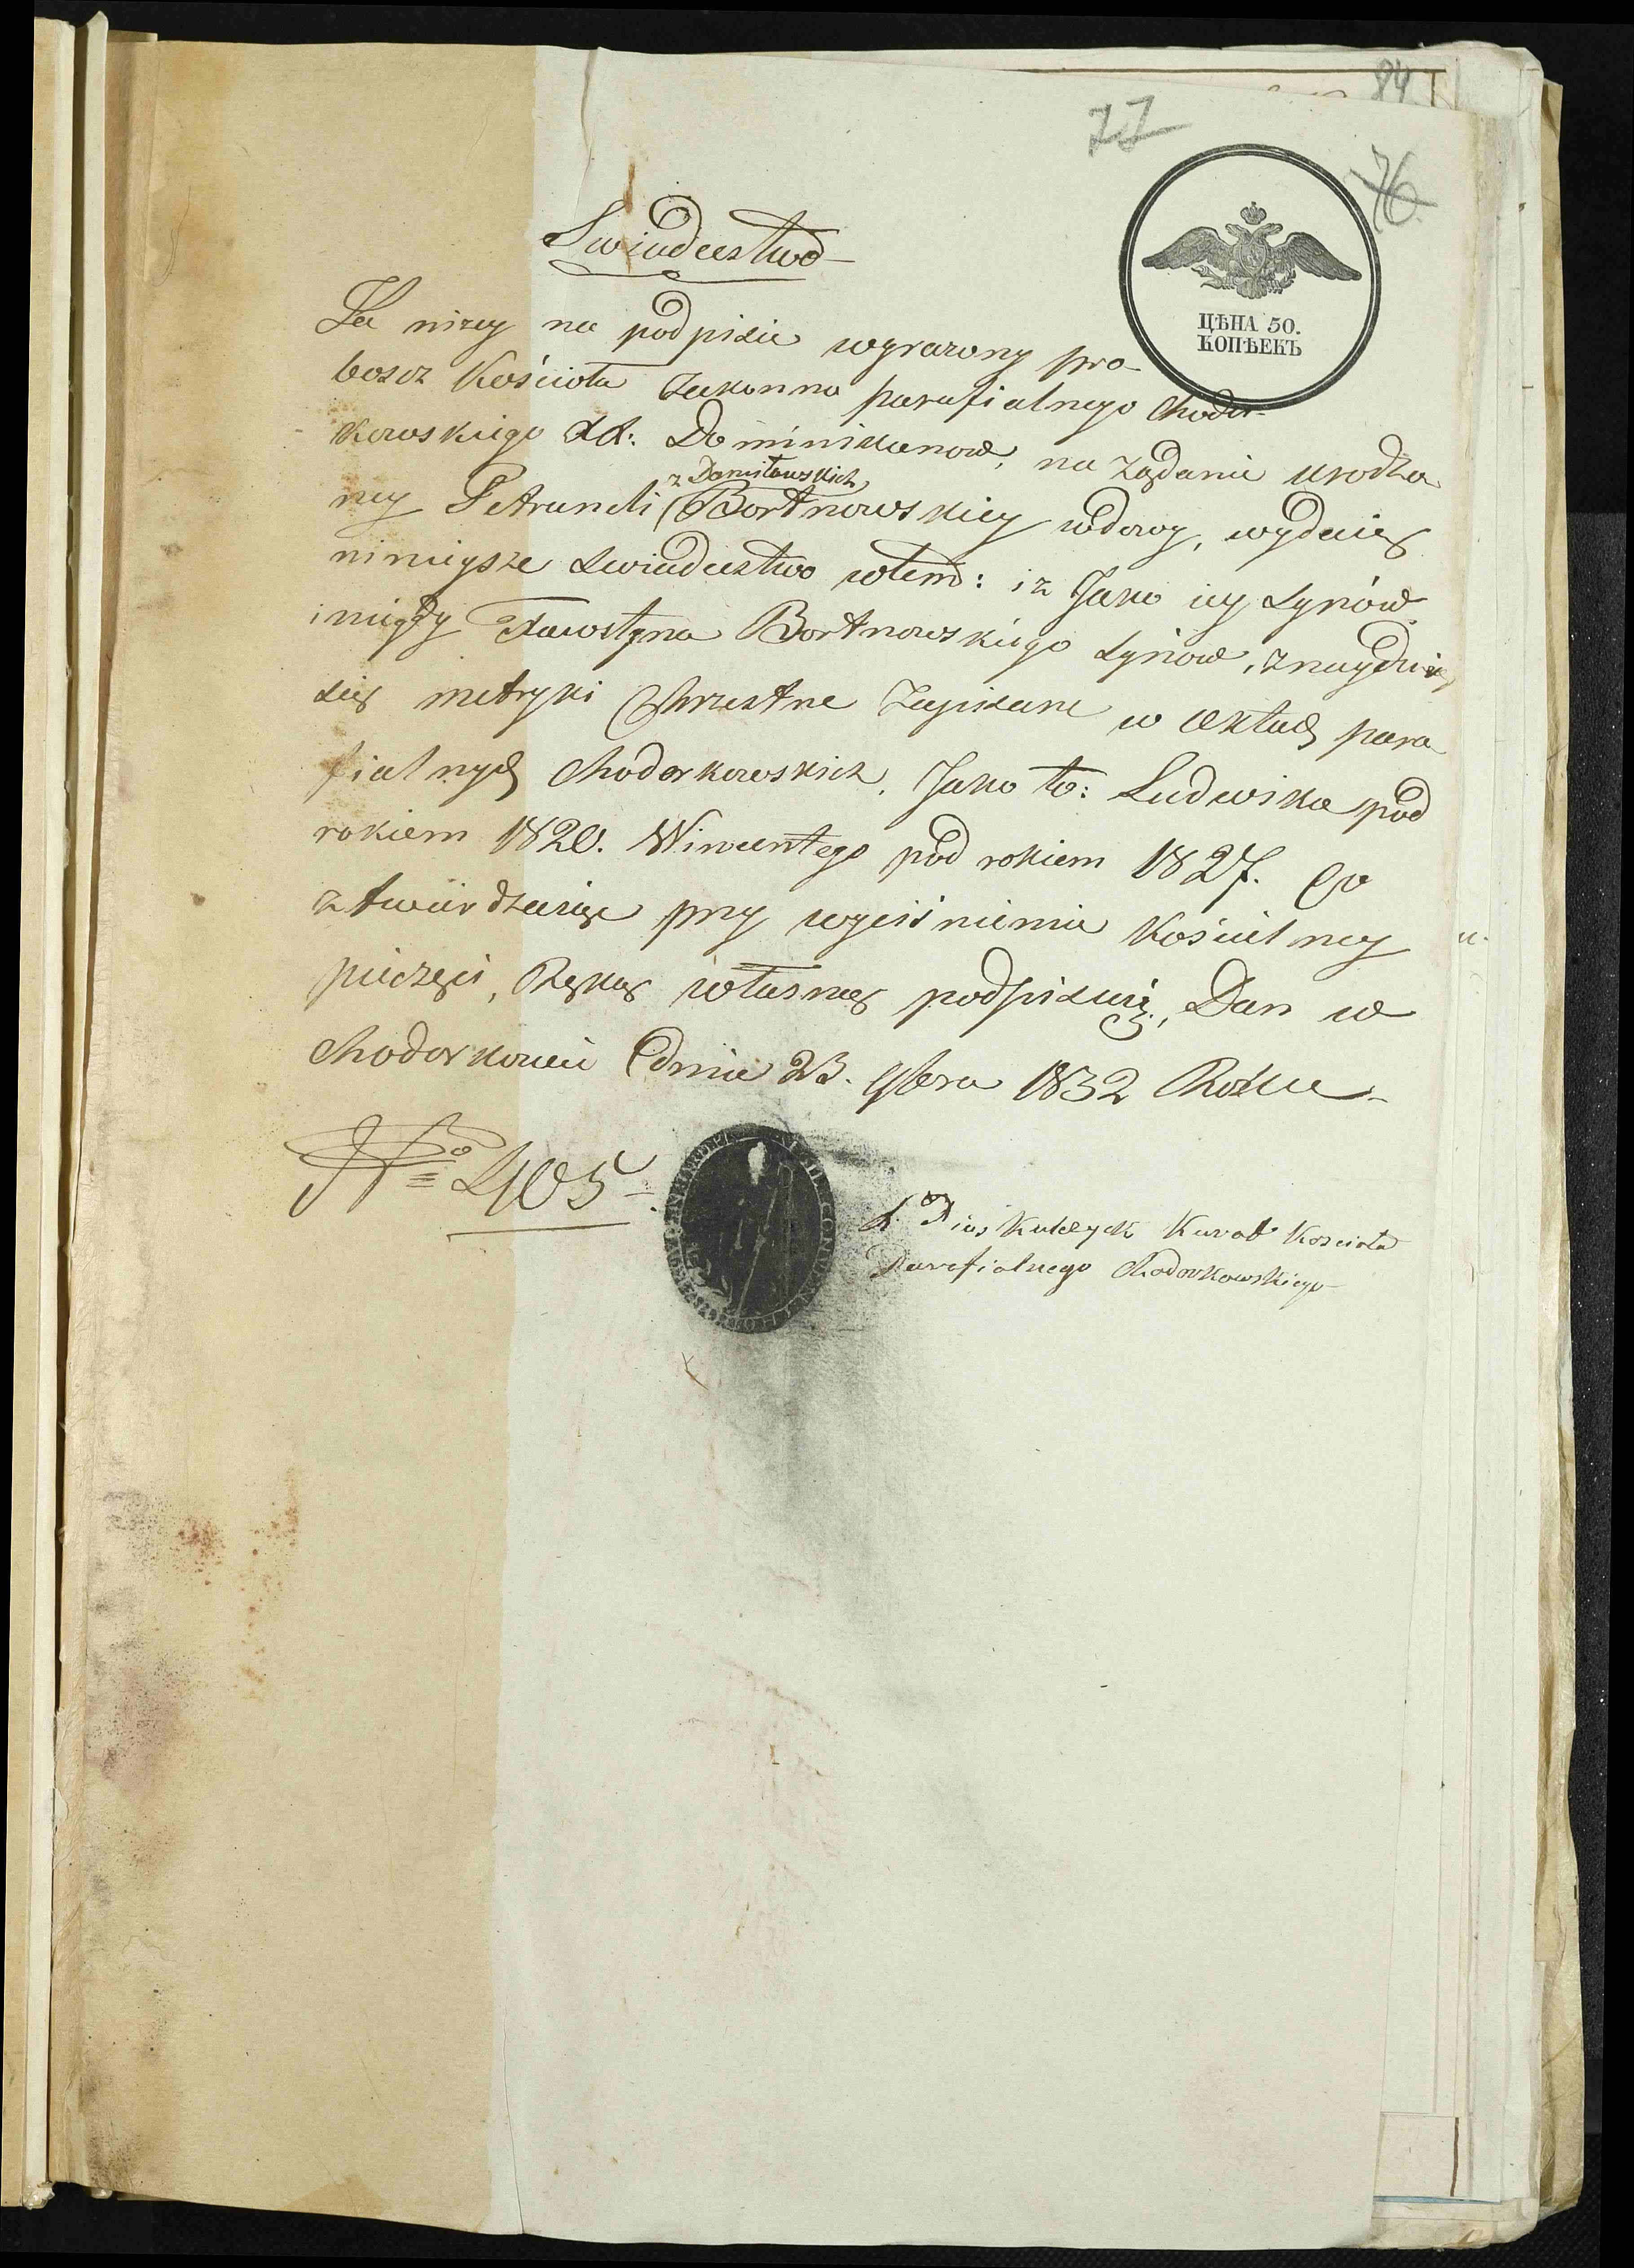 84
77
76
ЦѢНА 50.
КОПѢЕКЪ
Swiadectwo
Ja niżey na podpisie wyrażony pro-
boszcz Kościoła Zakonno parafialnego Chodor-
kowskiego XX: Dominikanow, na żądanie urodzo
z Domiławskich
ney Petruneli Bortnowskiey wdowy, wydaię
ninieysze swiadectwo wtem: iz Jako iey synów
i mięży Fawostyna Bortnowskiego synow, znaydują
się metryki Chrzestne Zapisane w aktach para
fialnych Chodorkowskich, Jako to: Ludwika pod
rokiem 1820. Wincentego pod rokiem 1827. Co
ztwierdzaiąc przy wyciśnieniu Kościelney
pieczęci, Ręką własną podpisuię, Dan w
Chodorkowie dnia 23. 9bra 1832 Roku
No 405
X. Pius Kulczycki Kurat Kościoła
Parafialnego Chodorkowskiego